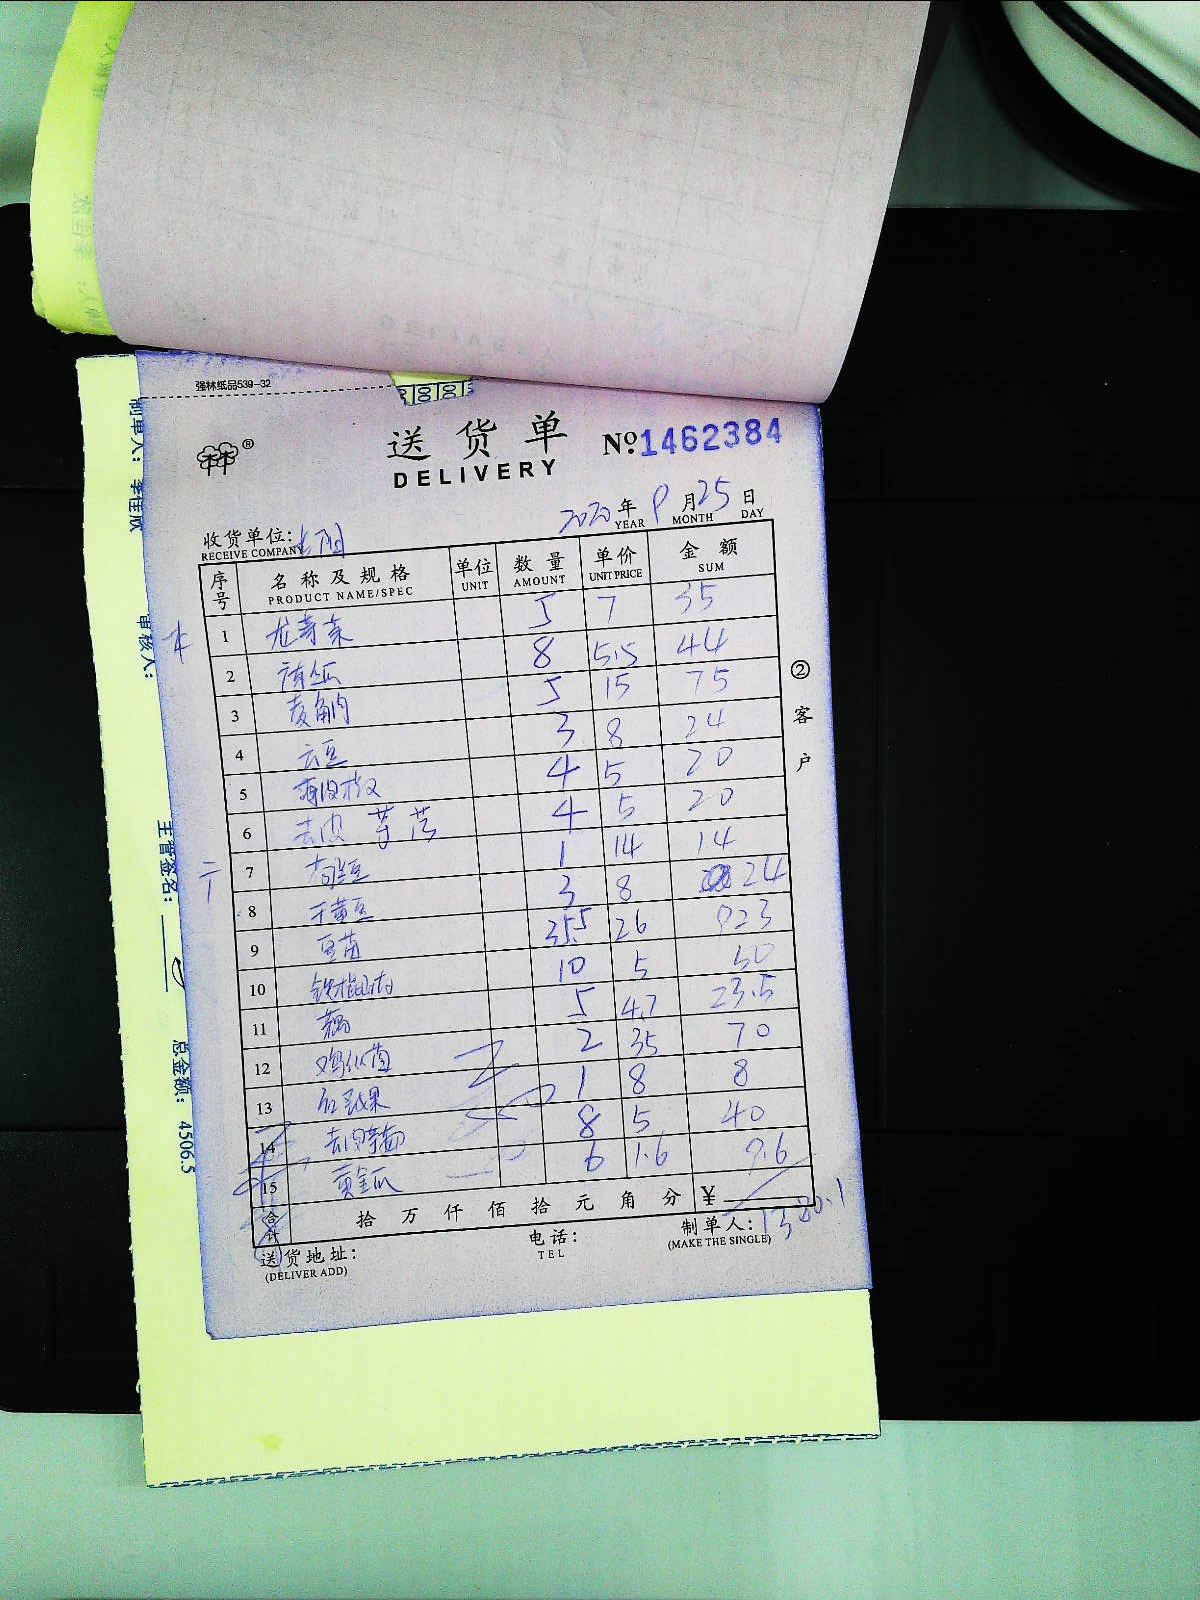 强林纸品539-32
送货单 №1462384
DELIVERY
2020年9月25日
YEAR MONTH DAY
收货单位:
RECEIVE COMPANY
序号 名称及规格 单位 数量 单价 金额
PRODUCT NAME/SPEC UNIT AMOUNT UNIT PRICE SUM
1 龙须菜 5 7 35
2 8 5.5 44
3 5 15 75
4 云豆 3 8 24
5 4 5 20
6 去皮荸荠 4 5 20
7 1 14 14
8 干黄豆 3 8 24
9 豆苗 35.5 26 923
10 铁棍山药 10 5 50
11 藕 5 4.7 23.5
12 鸡枞菌 2 35 70
13 1 8 8
14 去皮 8 5 40
15 黄金瓜 6 1.6 9.6
合计 拾万仟佰拾元角分 ¥
1380.1
送货地址:
(DELIVER ADD)
电话:
TEL
制单人:
(MAKE THE SINGLE)
②客户
制单人: 李佳成
审核人:
主管签名:
总金额: 4506.5